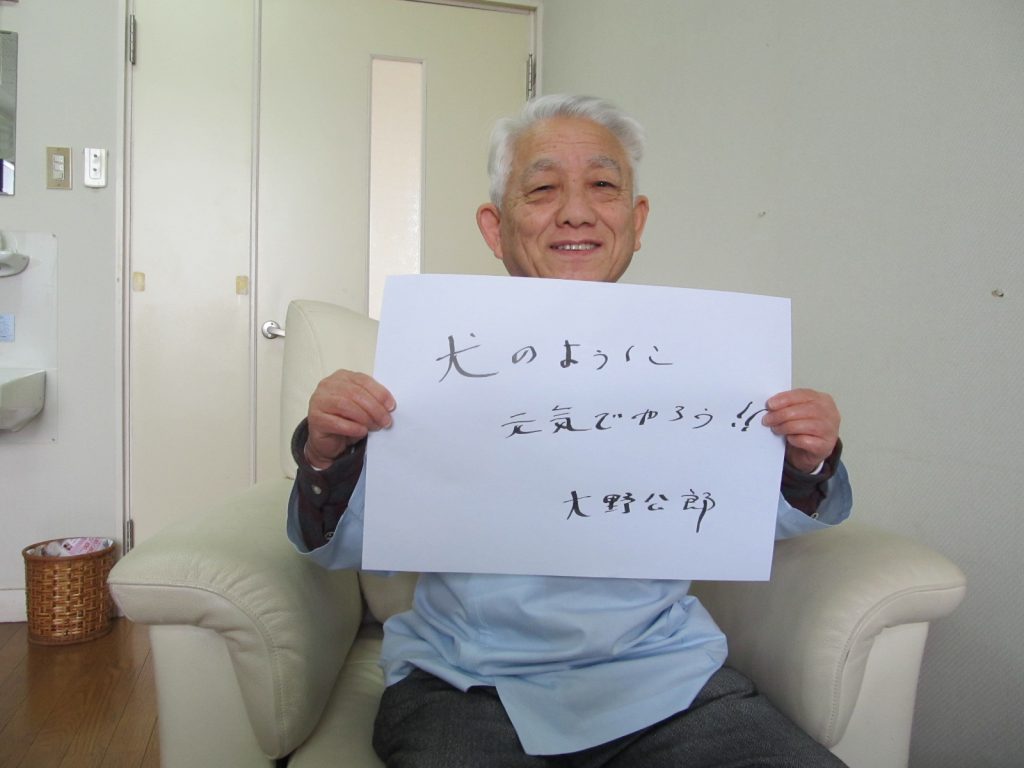 犬のように
元気でやろう!!
大野公郎